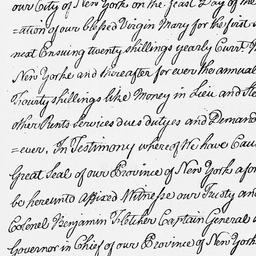 our City of New York on the feast Day of the
=ation of our blessed Virgin Mary for the first
next Ensuing twenty shillings yearly Currt. M
New Yorke and thereafter for ever the annuall
Fourty shillings like Money in Lieu and Ste
other Rents Services dues Dutyes and Demand
=ever, In Testimony whereof We have Caus
Great Seal of our Province of New York afor
be hereunto affixed Witnesse our Trusty and
Colonel Benjamin Fletcher Captain General a
Governor in Chief of our Province of New York